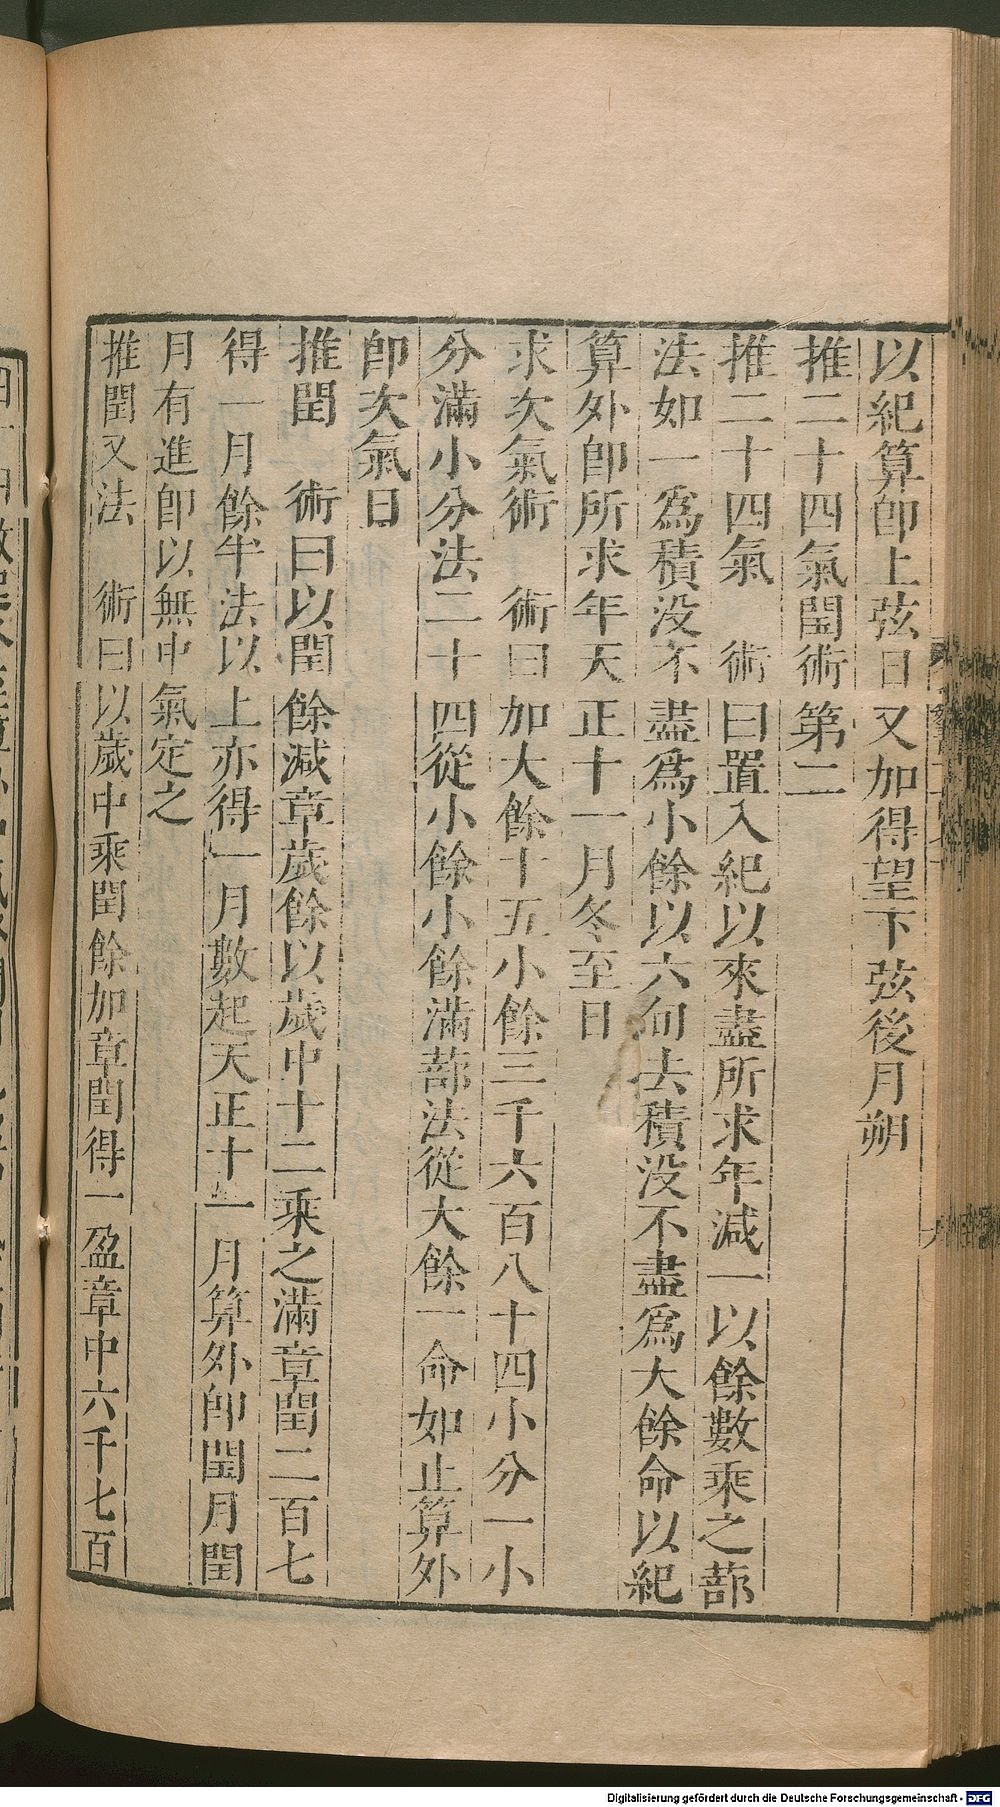 以紀算卽上弦日又加得望下弦後月朔
推二十四氣閏術第二
推二十四氣　術曰置入紀以來盡所求年減一以餘數乘之蔀
法如一爲積没不盡爲小餘以六旬去積没不盡爲大餘命以紀
算外卽所求年天正十一月冬至日
求次氣術　術曰加大餘十五小餘三千六百八十四小分一小
分滿小分法二十四從小餘小餘滿蔀法從大餘一命如止算外
卽次氣日
推閏　術曰以閏餘減章歲餘以歲中十二乘之滿章閏二百七
得一月餘半法以上亦得一月數起天正十一月算外卽閏月閏
月有進卽以無中氣定之
推閏又法　術曰以歲中乘閏餘加章閏得一盈章中六千七百
Digitalisierung gefördert durch die Deutsche Forschungsgemeinschaft - DFG